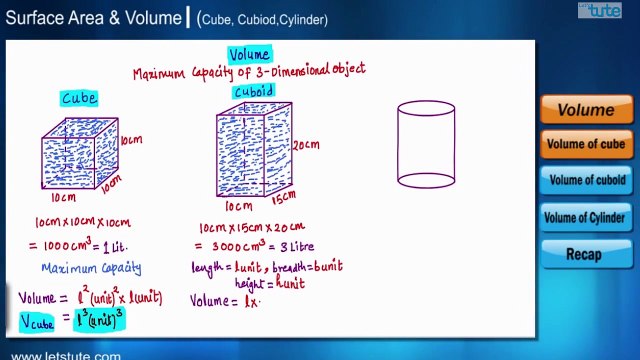 Surface Area & Volume | (Cube, Cubiod,Cylinder)
tute
Volume
Maximum Capacity of 3-Dimensional Object
Cube
10cm
10cm
10cm
10cm×10cm×10cm
= 1000cm³ = 1 Lit.
Maximum Capacity
Volume = l² (unit)² × l(unit)
Vcube = l³ (unit)³
Cuboid
20cm
15cm
10cm
10cm×15cm×20cm
= 3000cm³ = 3 Litre
length = l unit, breadth = b unit
height = h unit
Volume = l×
Volume
Volume of cube
Volume of cuboid
Volume of Cylinder
Recap
www.letstute.com